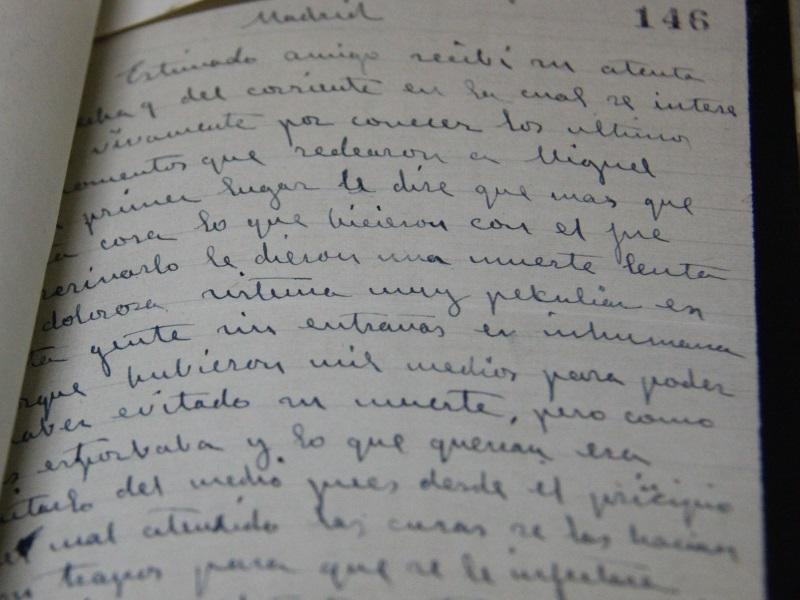 Madrid
146
Estimado amigo recibi su atenta
del corriente en la cual se intere
vivamente por conocer los ultimos
momentos que rodearon a Miguel
primer lugar le dire que mas que
cosa lo que hicieron con el fue
le dieron una muerte lenta
dolorosa sistema muy pekuliar en
ta gente sin entrañas en inhumana
rque hubieron mil medios para poder
aber evitado su muerte, pero como
s estorbaba y lo que querian era
itarlo del medio pues desde el pricipio
mal atendido las curas se las hacian
trapos para que se le infectara